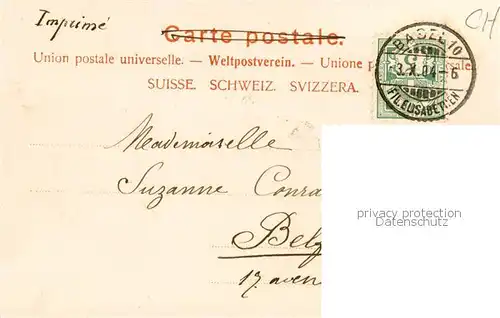 Imprimé
CH
Carte postale.
Union postale universelle. — Weltpostverein. — Unione postale universale.
SUISSE. SCHWEIZ. SVIZZERA.
BASEL 10
3.X.04-6
FIL. ELISABETHEN
5
Mademoiselle
Suzanne Conra
Belg
17, aven
privacy protection
Datenschutz